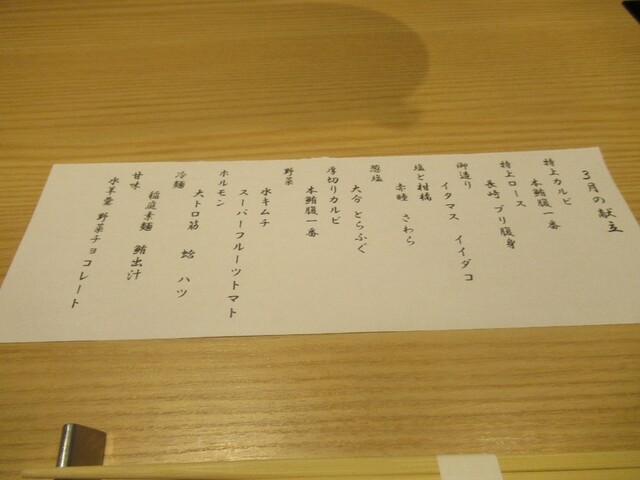 3月の献立
特上カルビ
本鮪腹一番
特上ロース
長崎 ブリ腹身
御造り
イタマス イイダコ
塩と柑橘
赤睦 さわら
葱塩
大分 とらふぐ
厚切りカルビ
本鮪腹一番
野菜
水キムチ
スーパーフルーツトマト
ホルモン
大トロ筋 蛤 ハツ
冷麺
稲庭素麺 鮪出汁
甘味
水羊羹 野菜チョコレート